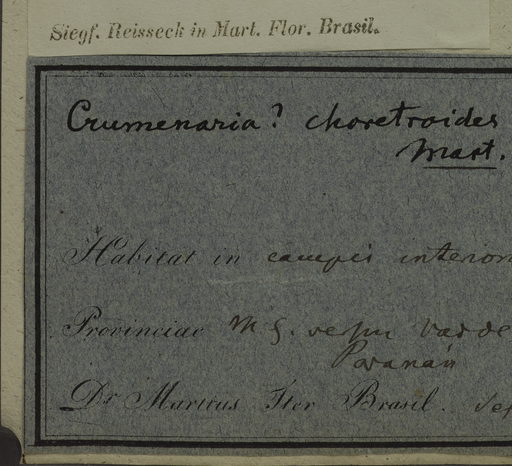 Siegf. Reisseck in Mart. Flor. Brasil.
Crumenaria? choretroides
Mart.
Habitat in campis interior
Provinciae M G. versus
Paranán
Dr. Martius Iter Brasil.